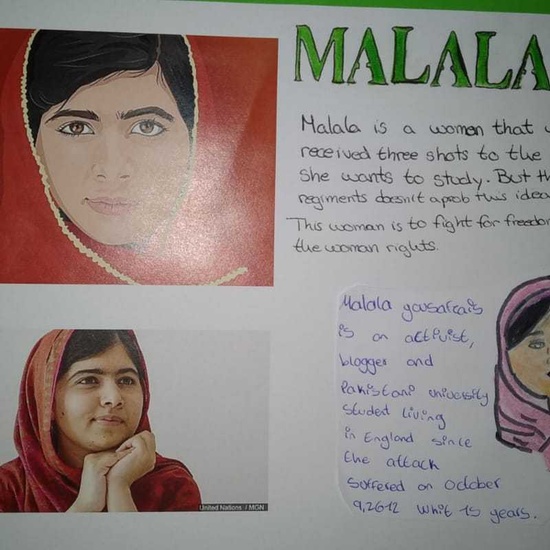 MALALA
Malala is a woman that
received three shots to the
she wants to study. But
regiments doesn't aprob this idea
This woman is to fight for freedom
the woman rights.
Malala yousafcais
is an activist,
blogger and
Pakistani university
studed living
in England since
the attack
soffered on October
9,2012 whit 15 years.
United Nations / MGN